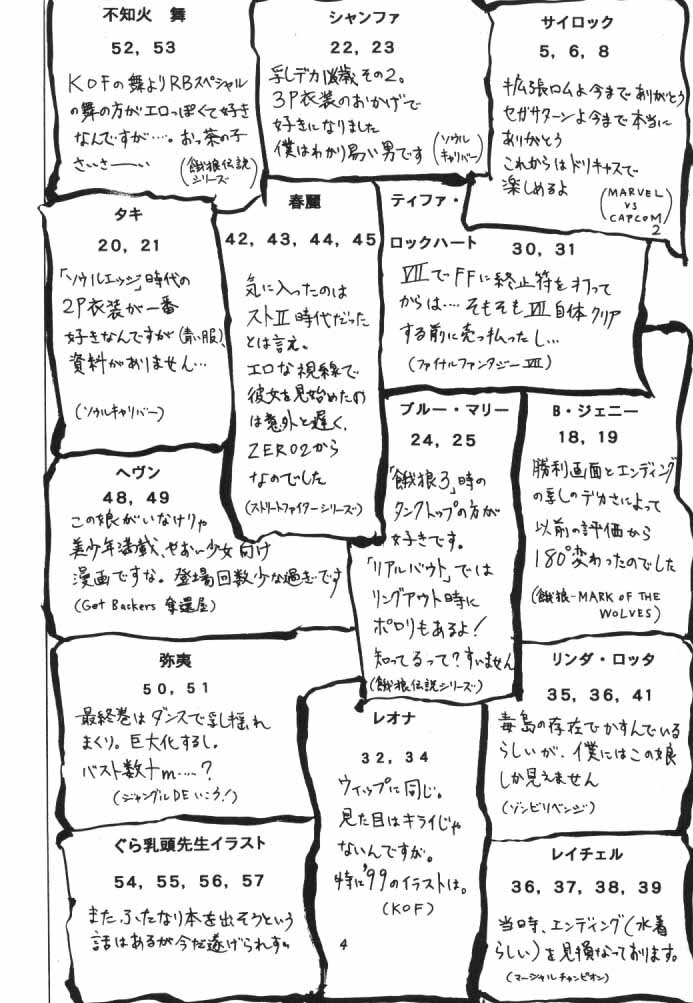 不知火 舞
52, 53
KOFの舞よりRBスペシャル
の舞の方がエロっぽくて好き
なんですが……。おっ茶の子
さいさーーい
(餓狼伝説
シリーズ)
シャンファ
22, 23
乳デカ1歳その2。
3P衣装のおかげで
好きになりました
僕はわかり易い男です
(ソウル
キャリバー)
サイロック
5, 6, 8
拡張ロムよ今までありがとう
セガサターンよ今まで本当に
ありがとう
これからはドリキャスで
楽しめるよ
(MARVEL
VS
CAPCOM
2
タキ
20, 21
「ソウルエッジ」時代の
2P衣装が一番
好きなんですが(青い服)、
資料がありません…
(ソウルキャリバー)
春麗
42, 43, 44, 45
気に入ったのは
ストII時代だった
とは言え。
エロな視線で
彼女を見始めたの
は意外と遅く、
ZERO2から
なのでした
(ストリートファイターシリーズ)
ティファ・
ロックハート
30, 31
VIIでFFに終止符を打って
からは…. そもそもVII自体クリア
する前に売っ払ったし…
(ファイナルファンタジーVII)
ブルー・マリー
24, 25
「餓狼3」時の
タンクトップの方が
好きです。
「リアルバウト」では
リングアウト時に
ポロリもあるよ!
知ってるって?すいません
(餓狼伝説シリーズ)
B・ジェニー
18, 19
勝利画面とエンディング
の乳のデカさによって
以前の評価から
180°変わったのでした
(餓狼-MARK OF THE
WOLVES)
ヘヴン
48, 49
この娘がいなけりゃ
美少年満載、やおい少女向け
漫画ですな。登場回数少な過ぎです
(Get Backers 奪還屋)
弥夷
50, 51
最終巻はダンスで乳揺れ
まくり。巨大化するし。
バスト数十m……?
(ジャングルDEいこう!)
レオナ
32, 34
ウィップに同じ。
見た目はキライじゃ
ないんですが。
特に'99のイラストは。
(KOF)
リンダ・ロッタ
35, 36, 41
毒島の存在でかすんでいる
らしいが、僕にはこの娘
しか見えません
(ゾンビリベンジ)
ぐら乳頭先生イラスト
54, 55, 56, 57
また、ふたなり本を出そうという
話はあるが今だ遂げられず。
レイチェル
36, 37, 38, 39
当時、エンディング(水着
らしい)を見損なっております。
(マーシャルチャンピオン)
4